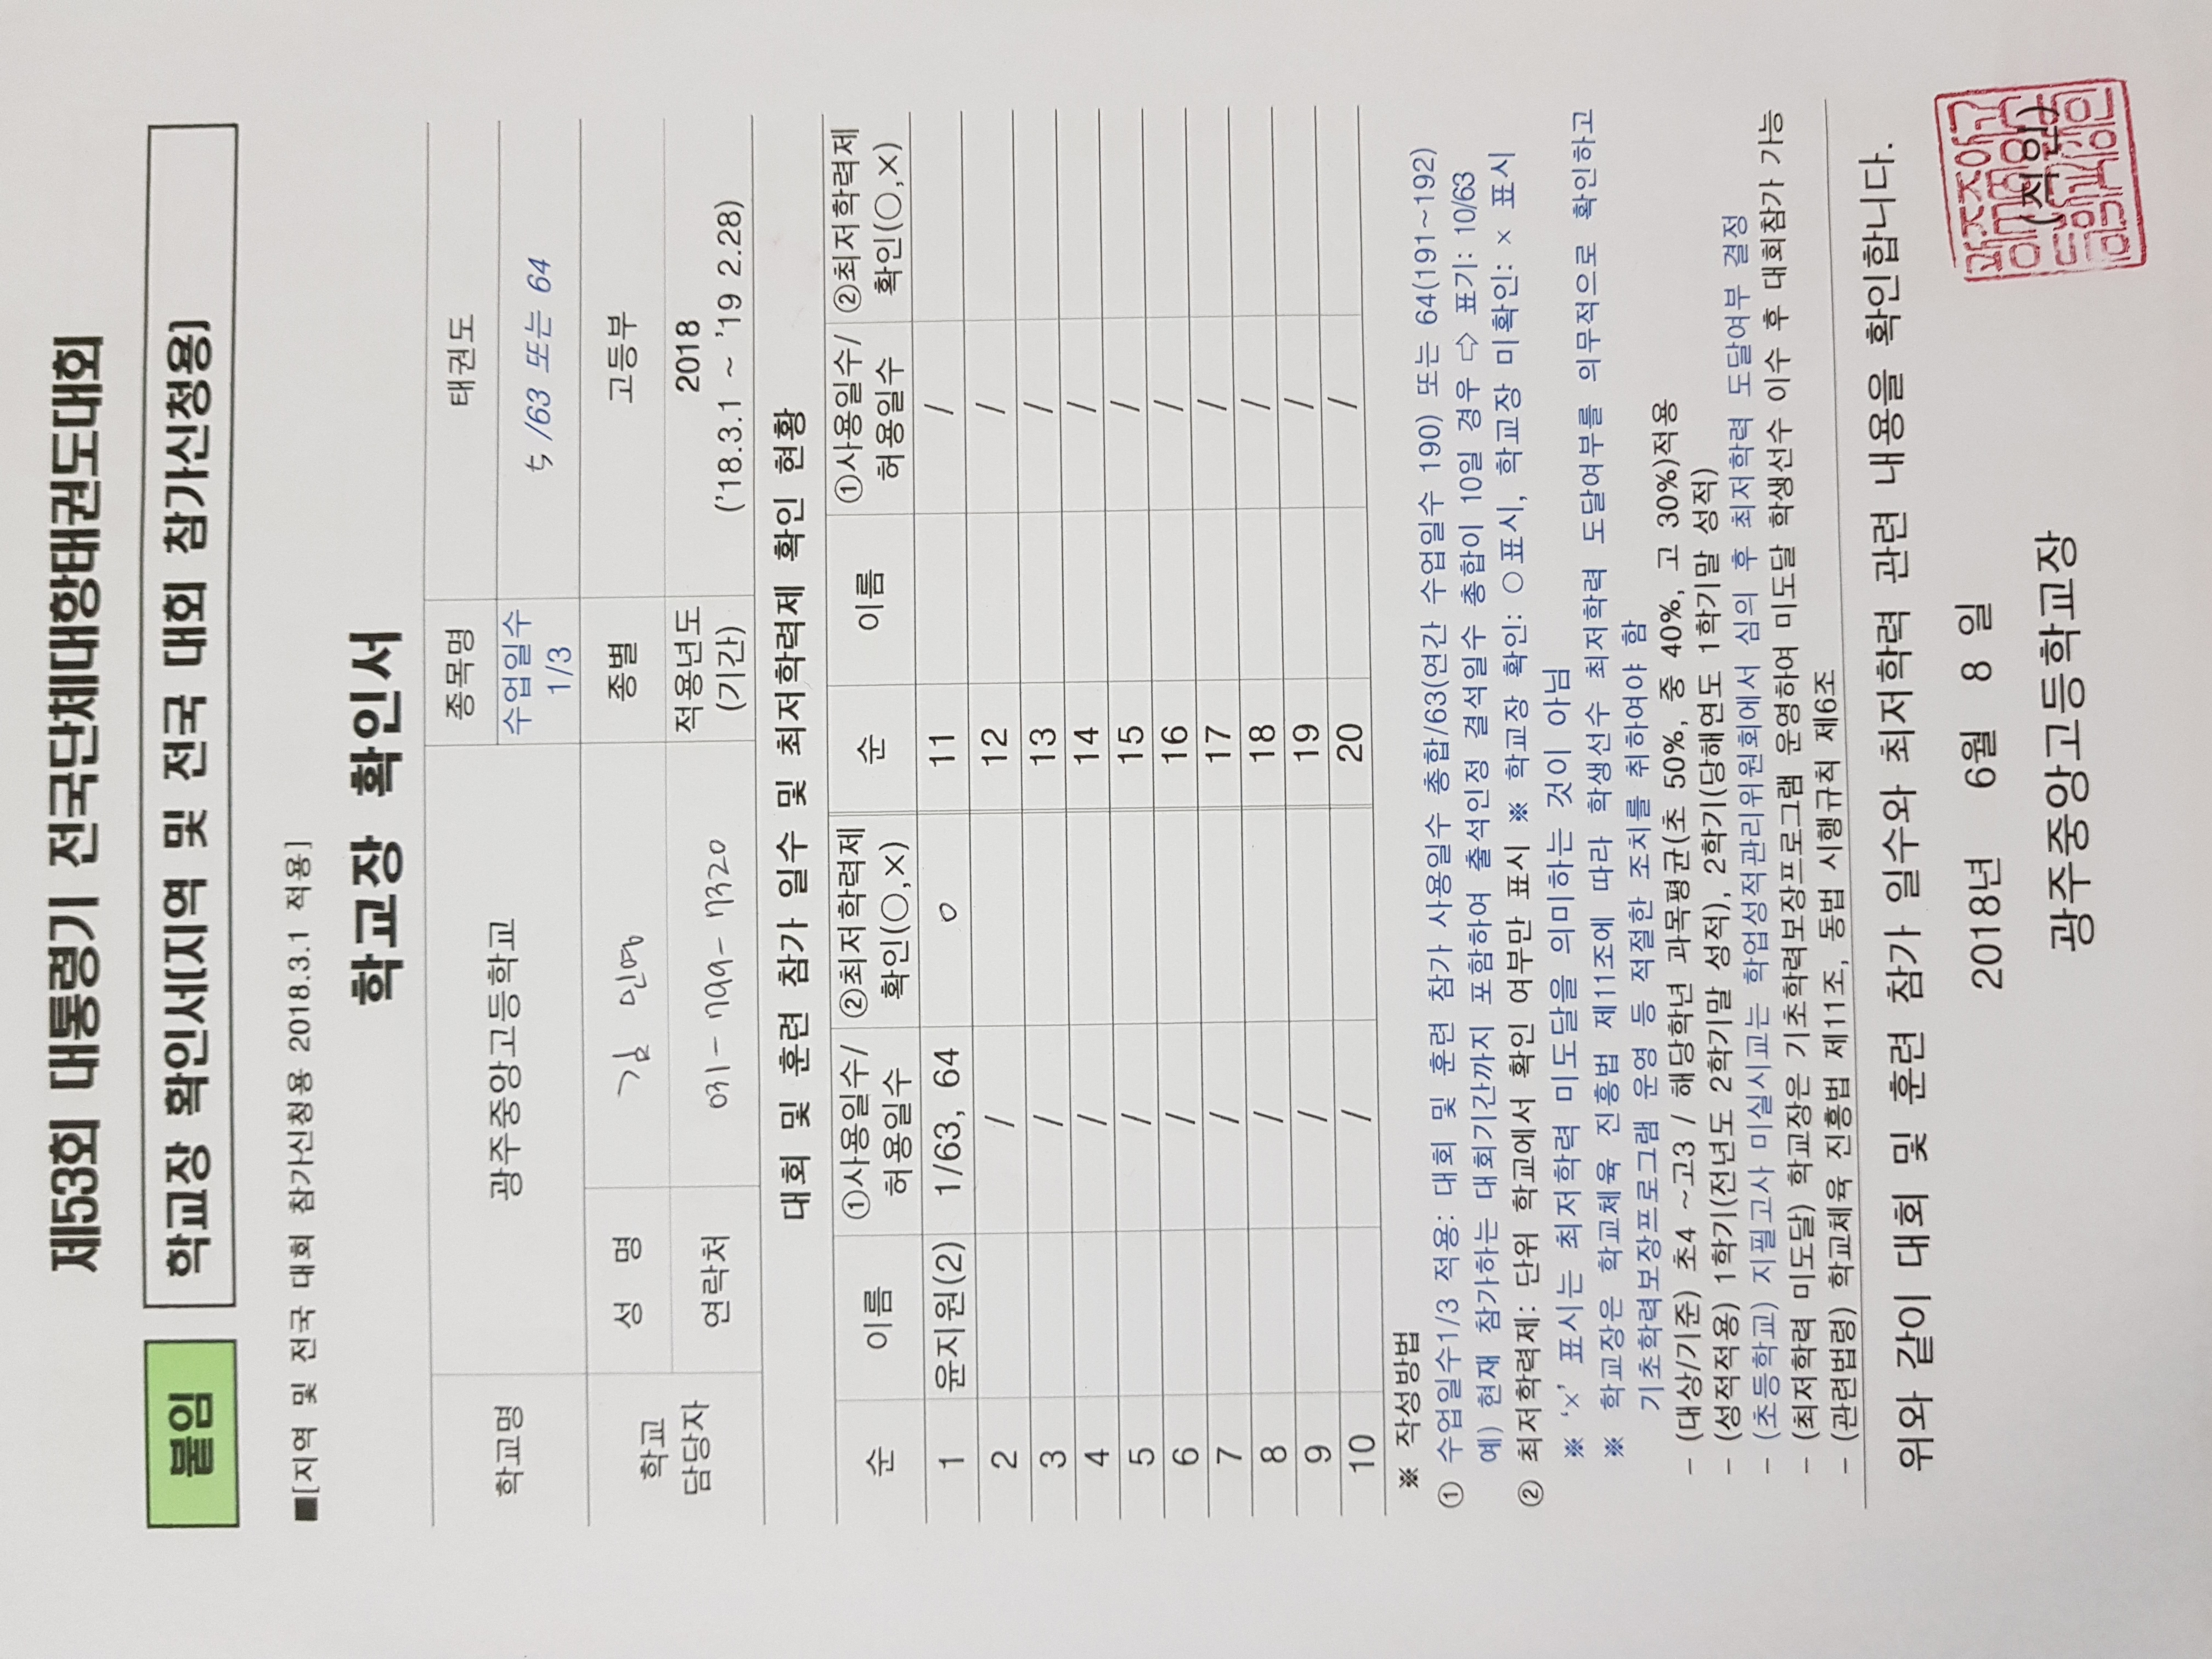 제53회 대통령기 전국단체대항태권도대회
붙임 학교장 확인서(지역 및 전국 대회 참가신청용)
■[지역 및 전국 대회 참가신청용 2018.3.1 적용]
학교장 확인서
학교명 광주중앙고등학교 종목명 태권도
수업일수 1/3 /63 또는 64
학교 담당자 성 명 김 민영 종별 고등부
연락처 031-799-7320 적용년도 (기간) 2018 ('18.3.1 ~ '19 2.28)
대회 및 훈련 참가 일수 및 최저학력제 확인 현황
순 이름 ①사용일수/허용일수 ②최저학력제 확인(○,×) 순 이름 ①사용일수/허용일수 ②최저학력제 확인(○,×)
1 윤지원(2) 1/63, 64 ○ 11 /
2 / 12 /
3 / 13 /
4 / 14 /
5 / 15 /
6 / 16 /
7 / 17 /
8 / 18 /
9 / 19 /
10 / 20 /
※ 작성방법
① 수업일수1/3 적용: 대회 및 훈련 참가 사용일수 총합/63(연간 수업일수 190) 또는 64(191~192)
예) 현재 참가하는 대회기간까지 포함하여 출석인정 결석일수 총합이 10일 경우 ⇨ 표기: 10/63
② 최저학력제: 단위 학교에서 확인 여부만 표시 ※ 학교장 확인: ○표시, 학교장 미확인: × 표시
※ '×' 표시는 최저학력 미도달을 의미하는 것이 아님
※ 학교장은 학교체육 진흥법 제11조에 따라 학생선수 최저학력 도달여부를 의무적으로 확인하고
기초학력보장프로그램 운영 등 적절한 조치를 취하여야 함
- (대상/기준) 초4 ~고3 / 해당학년 과목평균(초 50%, 중 40%, 고 30%)적용
- (성적적용) 1학기(전년도 2학기말 성적), 2학기(당해연도 1학기말 성적)
- (초등학교) 지필고사 미실시교는 학업성적관리위원회에서 심의 후 최저학력 도달여부 결정
- (최저학력 미도달) 학교장은 기초학력보장프로그램 운영하여 미도달 학생선수 이수 후 대회참가 가능
- (관련법령) 학교체육 진흥법 제11조, 동법 시행규칙 제6조
위와 같이 대회 및 훈련 참가 일수와 최저학력 관련 내용을 확인합니다.
2018년 6월 8일
광주중앙고등학교장 (직인)